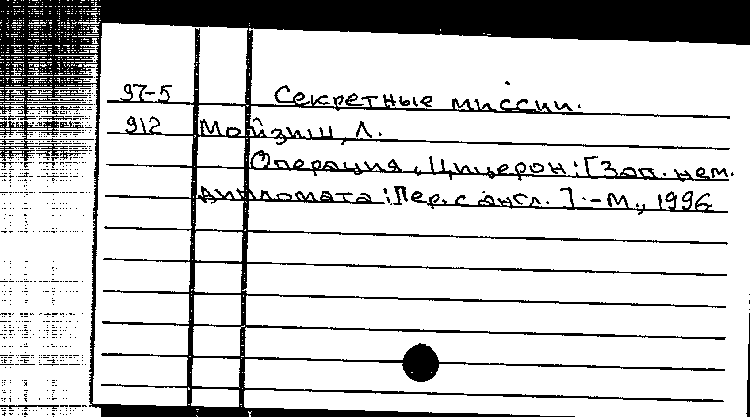 97-5 Секретные миссии.
912 Мойзиш, Л.
Операция „Цицерон: [Зап. нем.
дипломата: Пер. с англ.]. - М., 1996